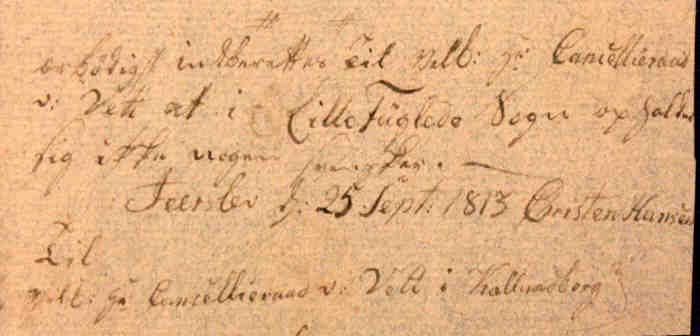 ærbødigst indberettes Til Velb: Hr: Cancellieraad
v: Vett at i Lille Fuglede Sogn opholder
sig ikke nogen Svensker. —
Feerslev d: 25 Sept: 1813 Cristen Hansen
Til
Velb: Hr Cancellieraad v: Vett i Kallundborg